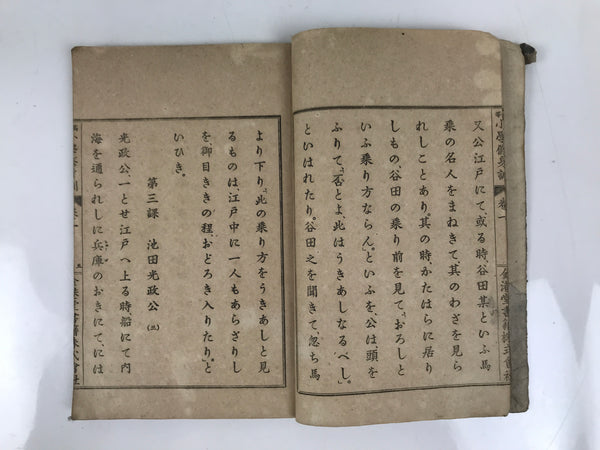 又公江戸にて或る時、谷田某といふ馬
乗の名人をまねきて、其のわざを見ら
れしことあり。其の時、かたはらに居り
しもの、谷田の乗り前を見て、「おろしと
いふ乗り方ならん。」といふを、公は頭を
ふりて、「否とよ、此はうきあしなるべし。」
といはれたり。谷田之を聞きて、忽ち馬
より下り、「此の乗り方をうきあしと見
るものは、江戸中に一人もあらざりし
を、御目ききの程、おどろき入りたり。」と
いひき。
第三課 池田光政公 (三)
光政公、一とせ江戸へ上る時、船にて内
海を通られしに兵庫のおきにて、には